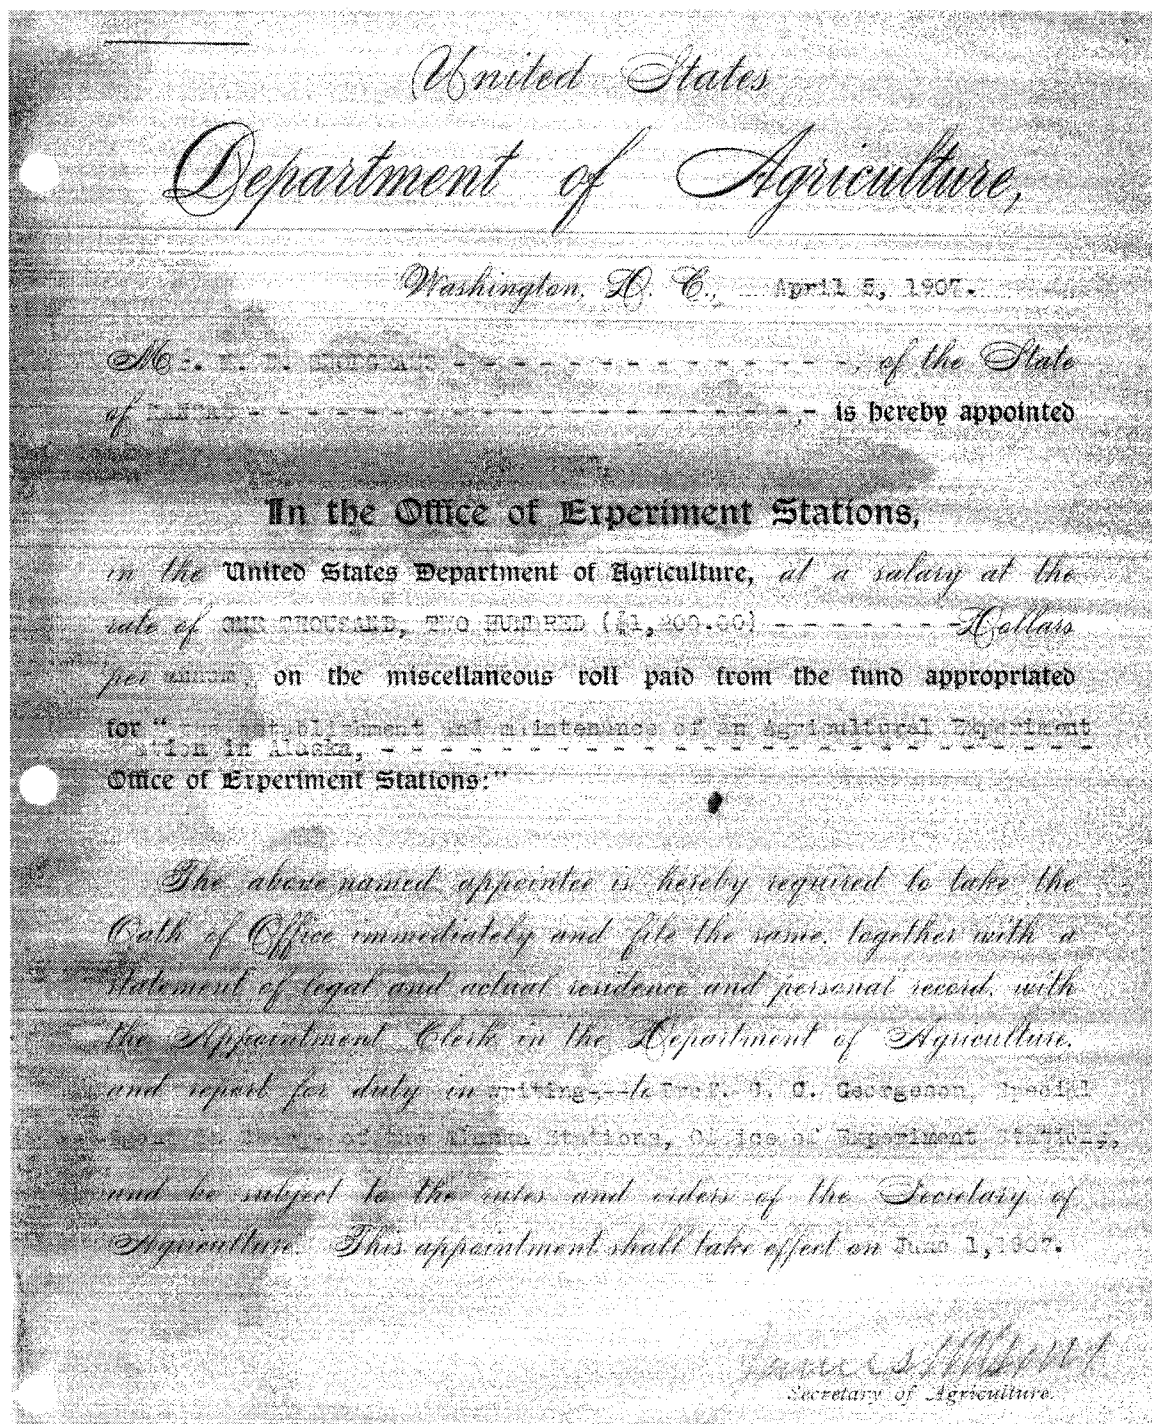 United States
Department of Agriculture,
Washington, D. C., April 5, 1907.
Mr. - - - - - - - - - - - - - -, of the State
of KANSAS - - - - - - - - - - - - - - - - - - - -, is hereby appointed
In the Office of Experiment Stations,
in the United States Department of Agriculture, at a salary at the
rate of ONE THOUSAND, TWO HUNDRED ($1,200.00) - - - - - - - Dollars
per annum, on the miscellaneous roll paid from the fund appropriated
for "the establishment and maintenance of an Agricultural Experiment
ation in Alaska, - - - - - - - - - - - - - - - - - - - - - - - - -
Office of Experiment Stations:"
The above named appointee is hereby required to take the
Oath of Office immediately and file the same, together with a
statement of legal and actual residence and personal record, with
the Appointment Clerk in the Department of Agriculture,
and report for duty in writing---to Prof. C. C. Georgeson, Special
Agent in Charge of the Alaska Stations, Office of Experiment Stations,
and be subject to the rules and orders of the Secretary of
Agriculture. This appointment shall take effect on June 1, 1907.
James Wilson
Secretary of Agriculture.